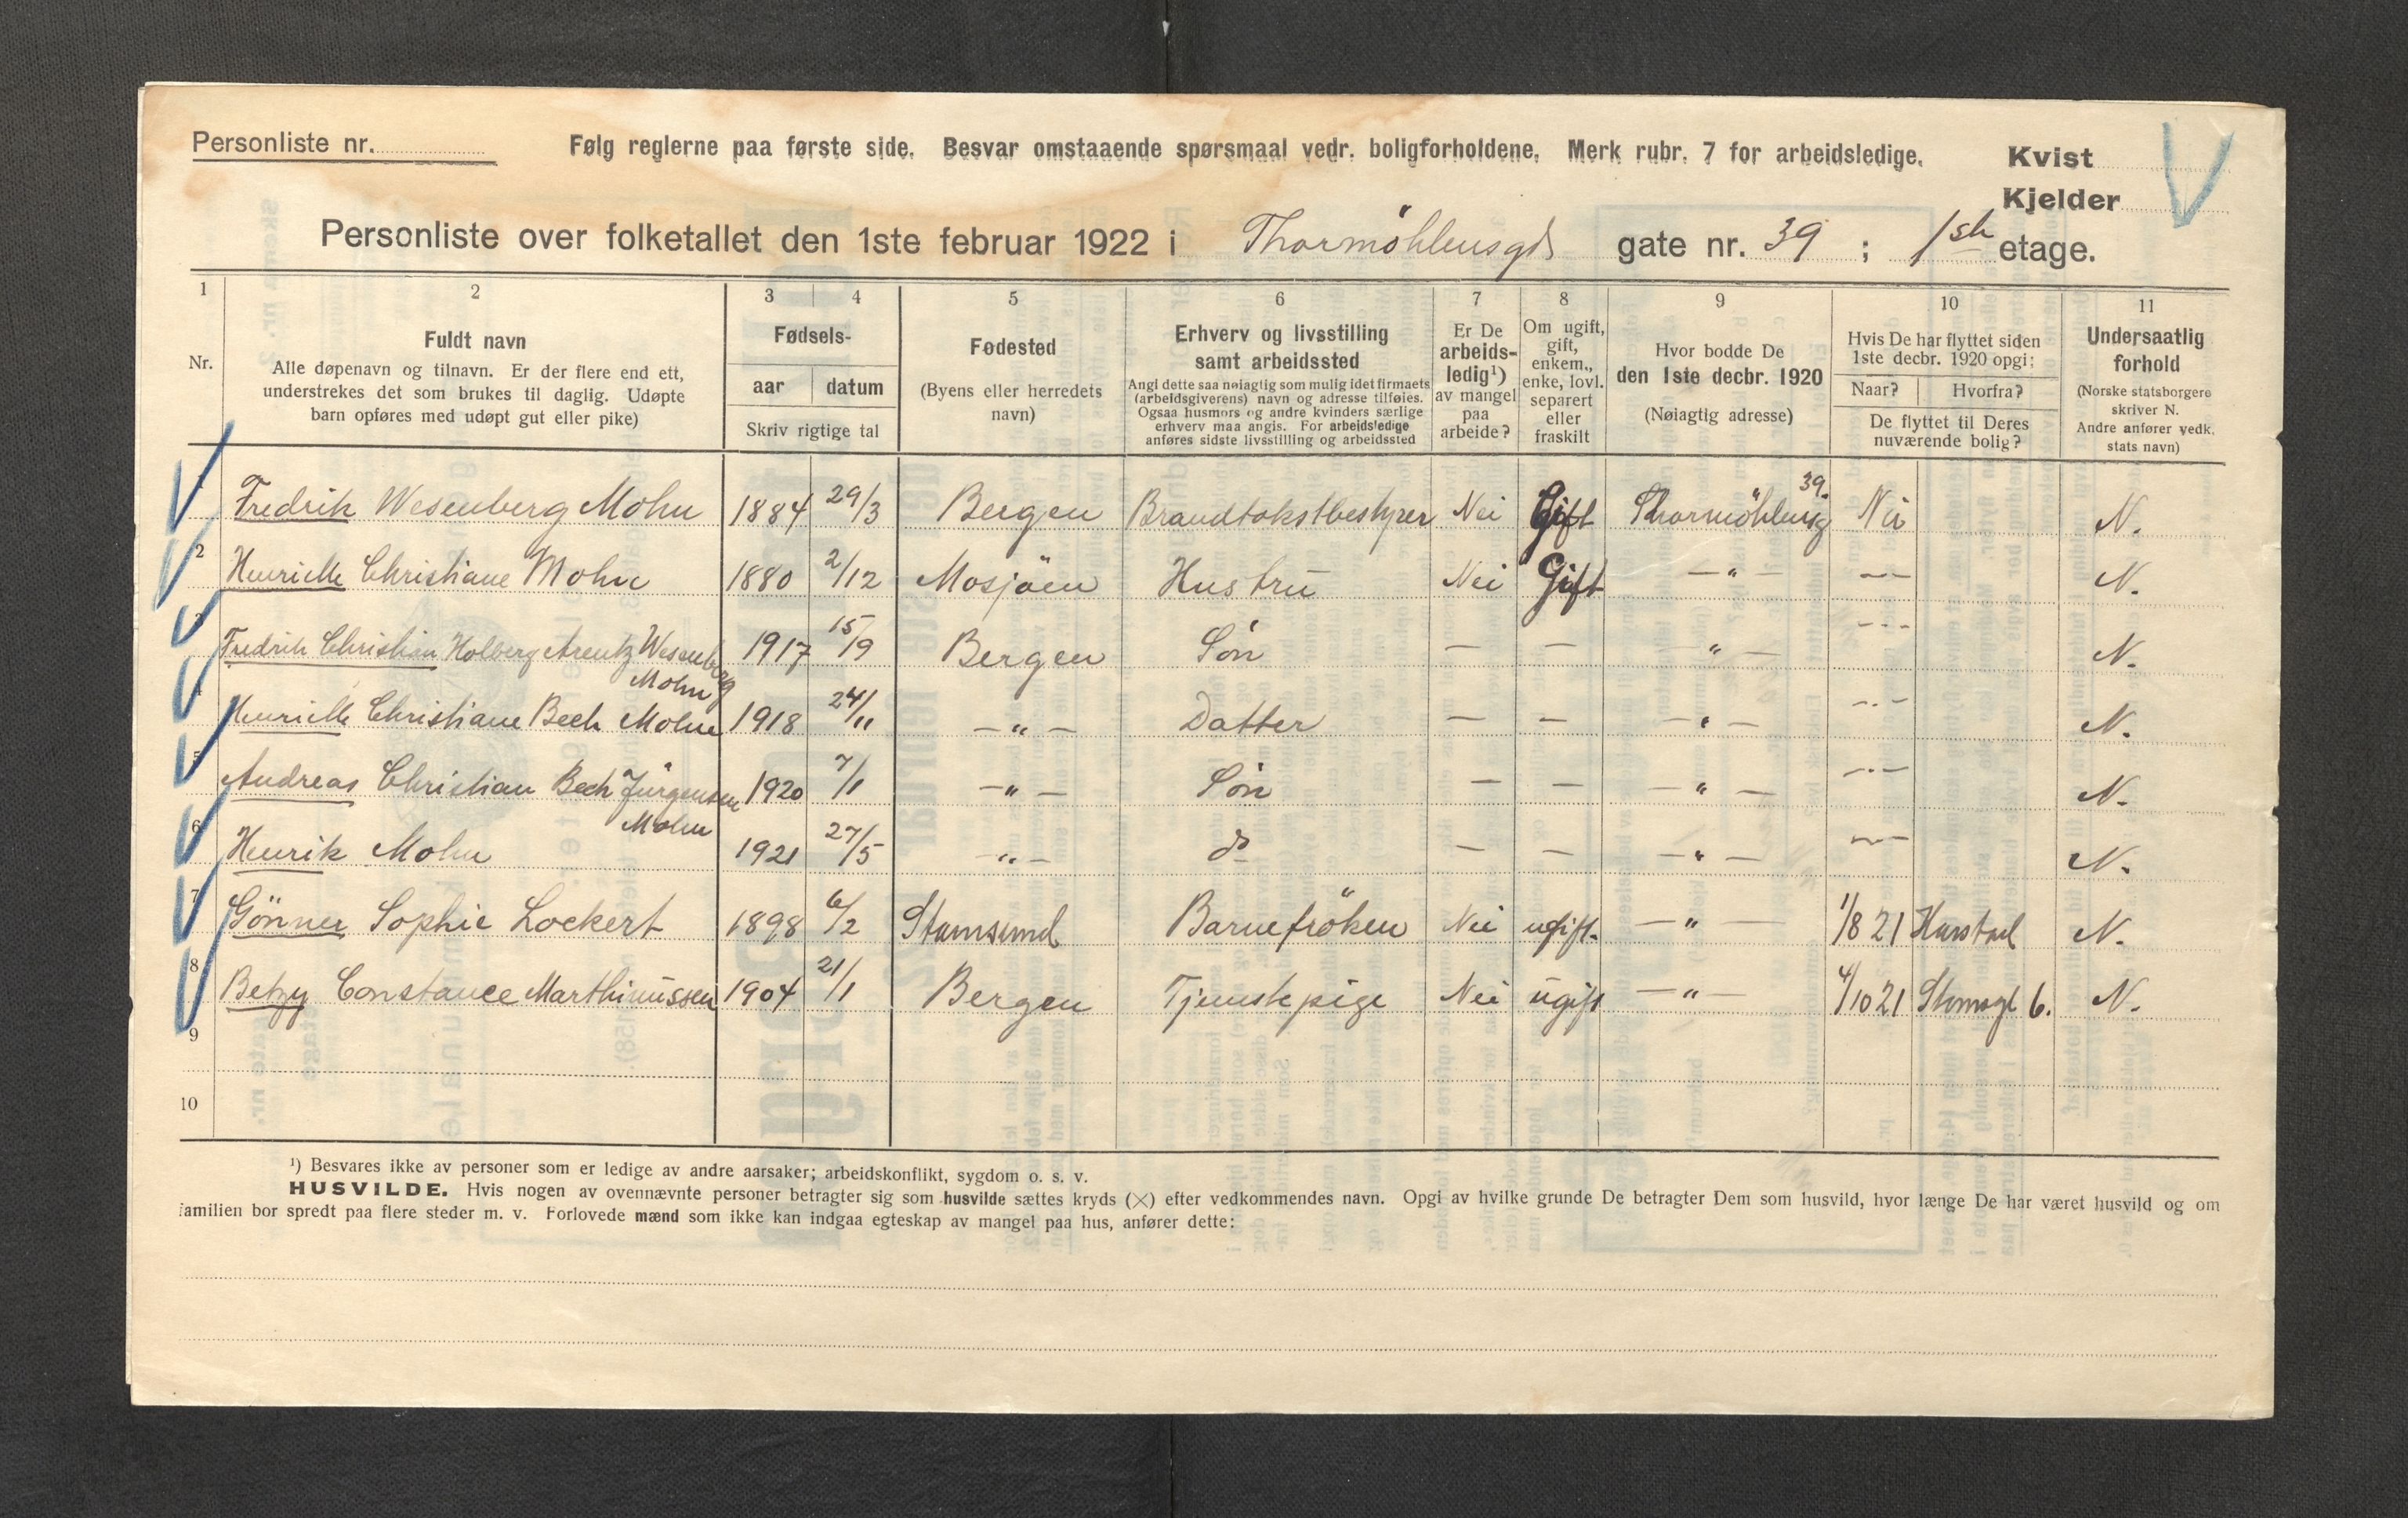 Personliste nr.
Følg reglerne paa første side. Besvar omstaaende spørsmaal vedr. boligforholdene. Merk rubr. 7 for arbeidsledige.
Kvist
Kjelder
Personliste over folketallet den 1ste februar 1922 i Thormöhlensgt gate nr. 39 ; 1ste etage.
1 2 3 4 5 6 7 8 9 10 11
Nr.
Fuldt navn
Alle døpenavn og tilnavn. Er der flere end ett,
understrekes det som brukes til daglig. Udøpte
barn opføres med udøpt gut eller pike)
Fødsels-
aar datum
Skriv rigtige tal
Fødested
(Byens eller herredets
navn)
Erhverv og livsstilling
samt arbeidssted
Angi dette saa nøiagtig som mulig idet firmaets
(arbeidsgiverens) navn og adresse tilføies.
Ogsaa husmors og andre kvinders særlige
erhverv maa angis. For arbeidsledige
anføres sidste livsstilling og arbeidssted
Er De
arbeids-
ledig¹)
av mangel
paa
arbeide?
Om ugift,
gift,
enkem.,
enke, lovl.
separert
eller
fraskilt
Hvor bodde De
den 1ste decbr. 1920
(Nøiagtig adresse)
Hvis De har flyttet siden
1ste decbr. 1920 opgi:
Naar? Hvorfra?
De flyttet til Deres
nuværende bolig?
Undersaatlig
forhold
(Norske statsborgere
skriver N.
Andre anfører vedk.
stats navn)
1 Fredrik Wesenberg Mohn 1884 29/3 Bergen Brandtakstbestyrer Nei Gift Thormöhlensg 39. Nei N.
2 Henriette Christiane Mohn 1880 2/12 Mosjöen Hustru Nei Gift —"— —"— N.
3 Fredrik Christian Holberg Arentz Wesenberg Mohn 1917 15/9 Bergen Sön — — "— —"— N.
4 Henriette Christiane Bech Mohn 1918 24/11 —"— Datter — — —"— —"— N.
5 Andreas Christian Bech Jürgensen Mohn 1920 7/1 —"— Sön — — —"— —"— N.
6 Henrik Mohn 1921 27/5 —"— do — — —"— —"— N.
7 Gönner Sophie Lockert 1898 6/2 Stamsund Barnefröken Nei ugift. —"— 1/8 21 Harstad N.
8 Betzy Constance Marthinussen 1904 21/1 Bergen Tjenstepige Nei ugift —"— 4/10 21 6. N.
9
10
¹) Besvares ikke av personer som er ledige av andre aarsaker; arbeidskonflikt, sygdom o. s. v.
HUSVILDE. Hvis nogen av ovennævnte personer betragter sig som husvilde sættes kryds (×) efter vedkommendes navn. Opgi av hvilke grunde De betragter Dem som husvild, hvor længe De har været husvild og om
familien bor spredt paa flere steder m. v. Forlovede mænd som ikke kan indgaa egteskap av mangel paa hus, anfører dette: